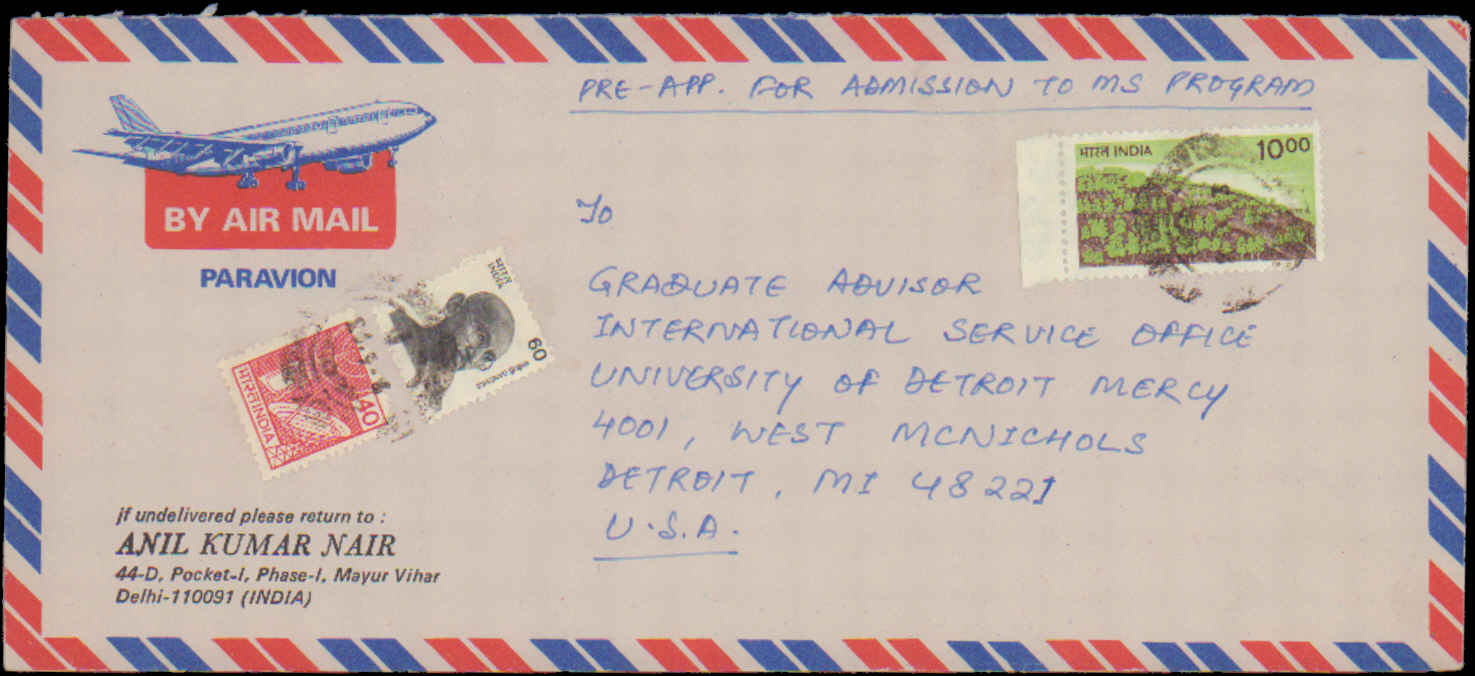 PRE-APP. FOR ADMISSION TO MS PROGRAM
BY AIR MAIL
PARAVION
भारत INDIA 10.00
भारत INDIA 60
भारत INDIA 40
To
GRADUATE ADVISOR
INTERNATIONAL SERVICE OFFICE
UNIVERSITY OF DETROIT MERCY
4001, WEST MCNICHOLS
DETROIT, MI 48221
U.S.A.
If undelivered please return to :
ANIL KUMAR NAIR
44-D, Pocket-I, Phase-I, Mayur Vihar
Delhi-110091 (INDIA)